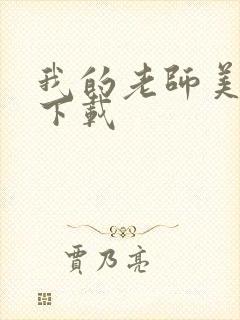 我的老師美
下載
賈乃亮